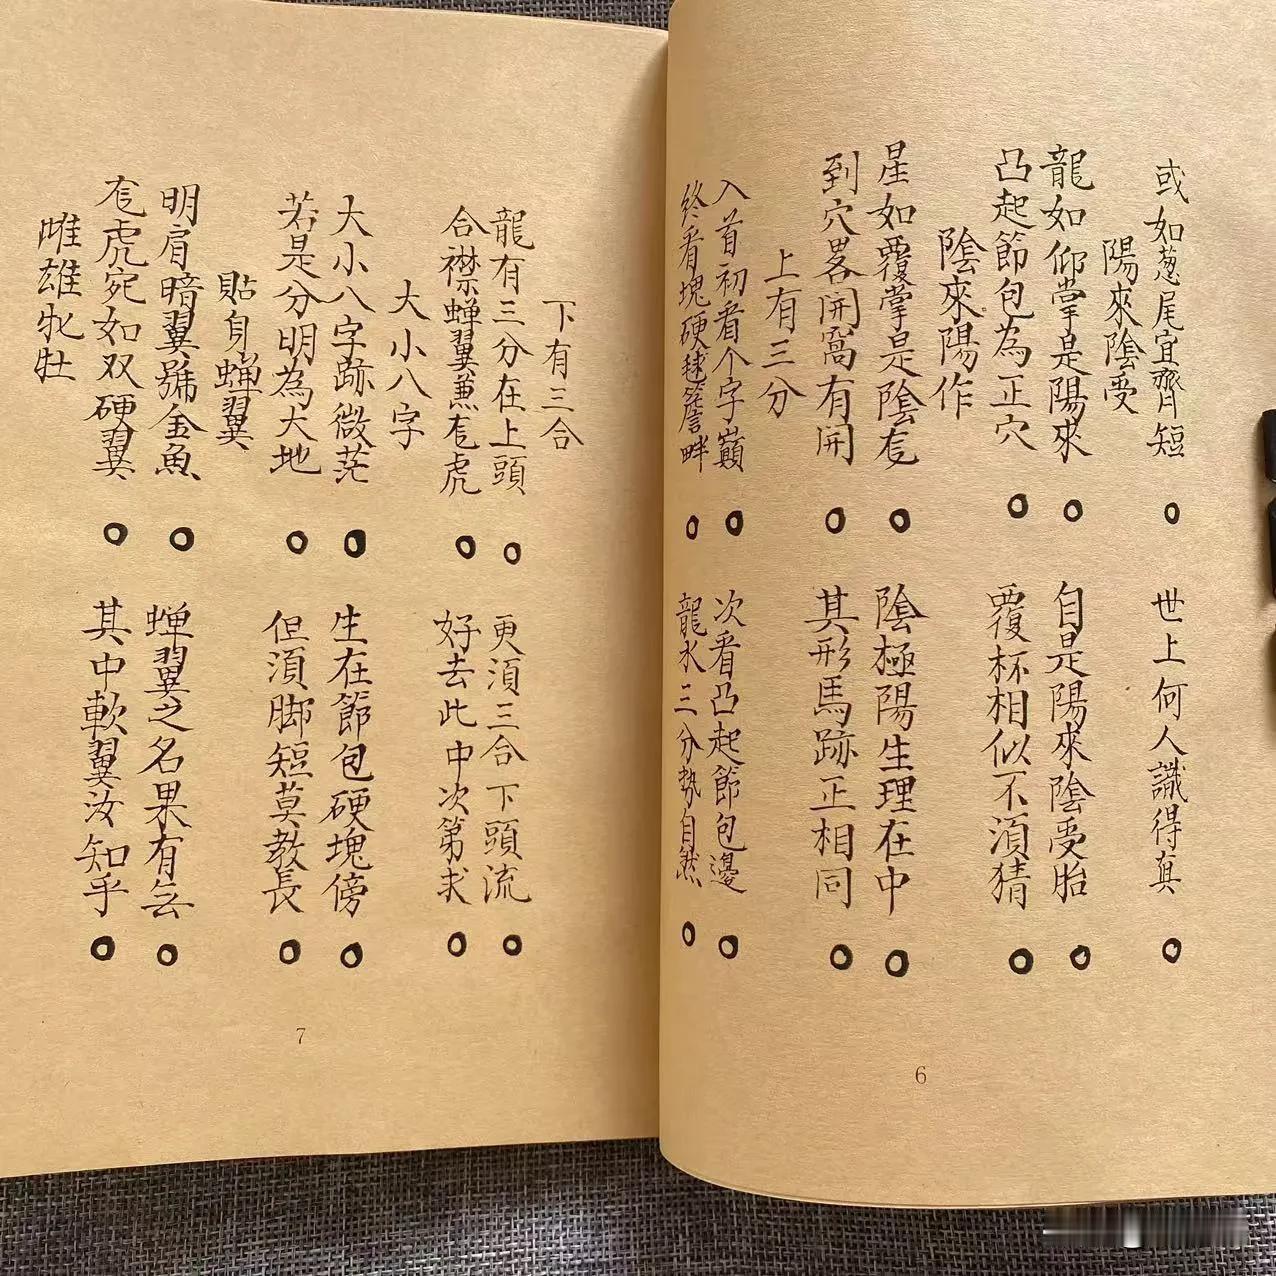 或如葱尾宜齊短○世上何人識得真○
陽來陰受
龍如仰掌是陽來○自是陽來陰受胎○
凸起節包為正穴○覆杯相似不須猜○
陰來陽作
星如覆掌是陰龙○陰極陽生理在中○
到穴畧開窩有開○其形馬跡正相同○
上有三分
入首初看个字巔○次看凸起節包邊○
終看塊硬毬簷畔○龍水三分势自然○
6
下有三合
龍有三分在上頭○更須三合下頭流○
合襟蝉翼兼龙虎○好去此中次第求○
大小八字
大小八字跡微茫○生在節包硬塊傍○
若是分明為大地○但須脚短莫教長○
貼身蝉翼
明肩暗翼號金魚○蝉翼之名果有无○
龙虎宛如双硬翼○其中軟翼汝知乎○
雌雄牝牡
7